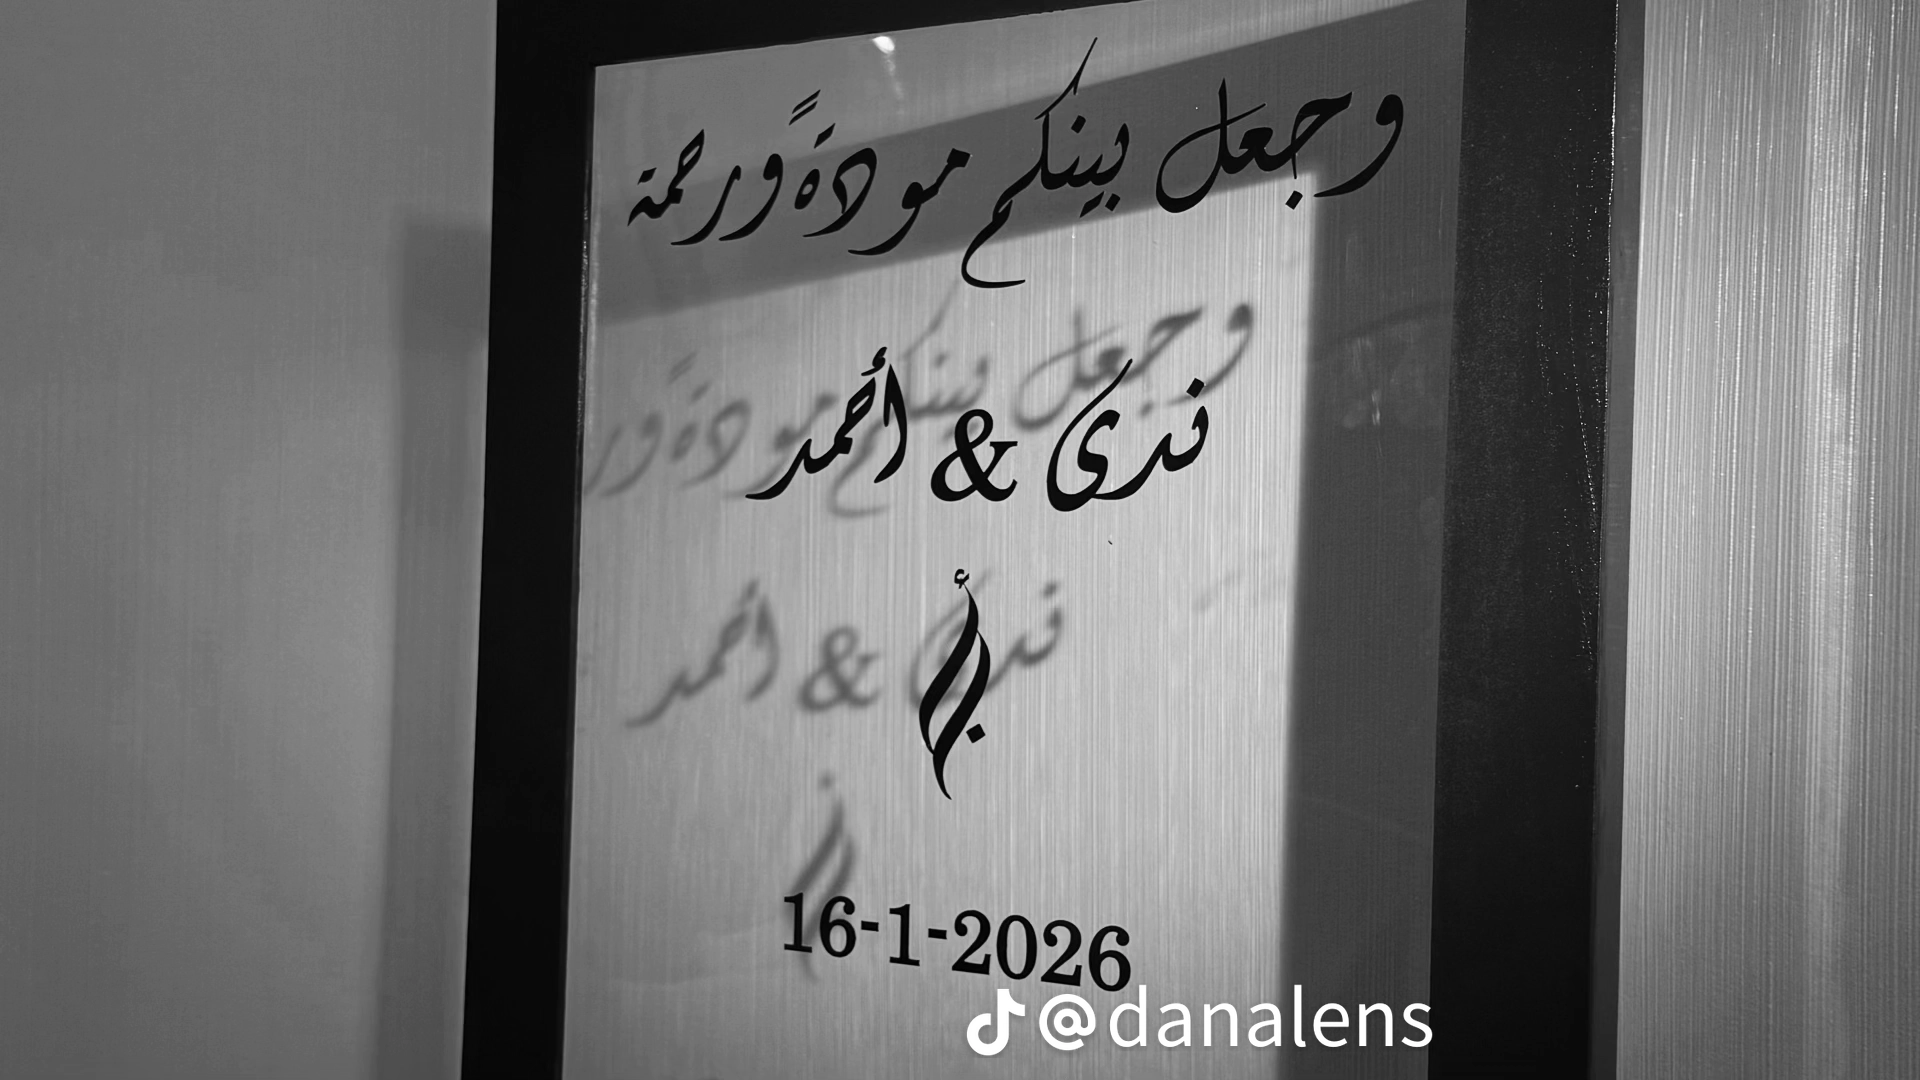 وجعل بينكم مودةً ورحمة
ندى & أحمد
أ ن
16-1-2026
@danalens